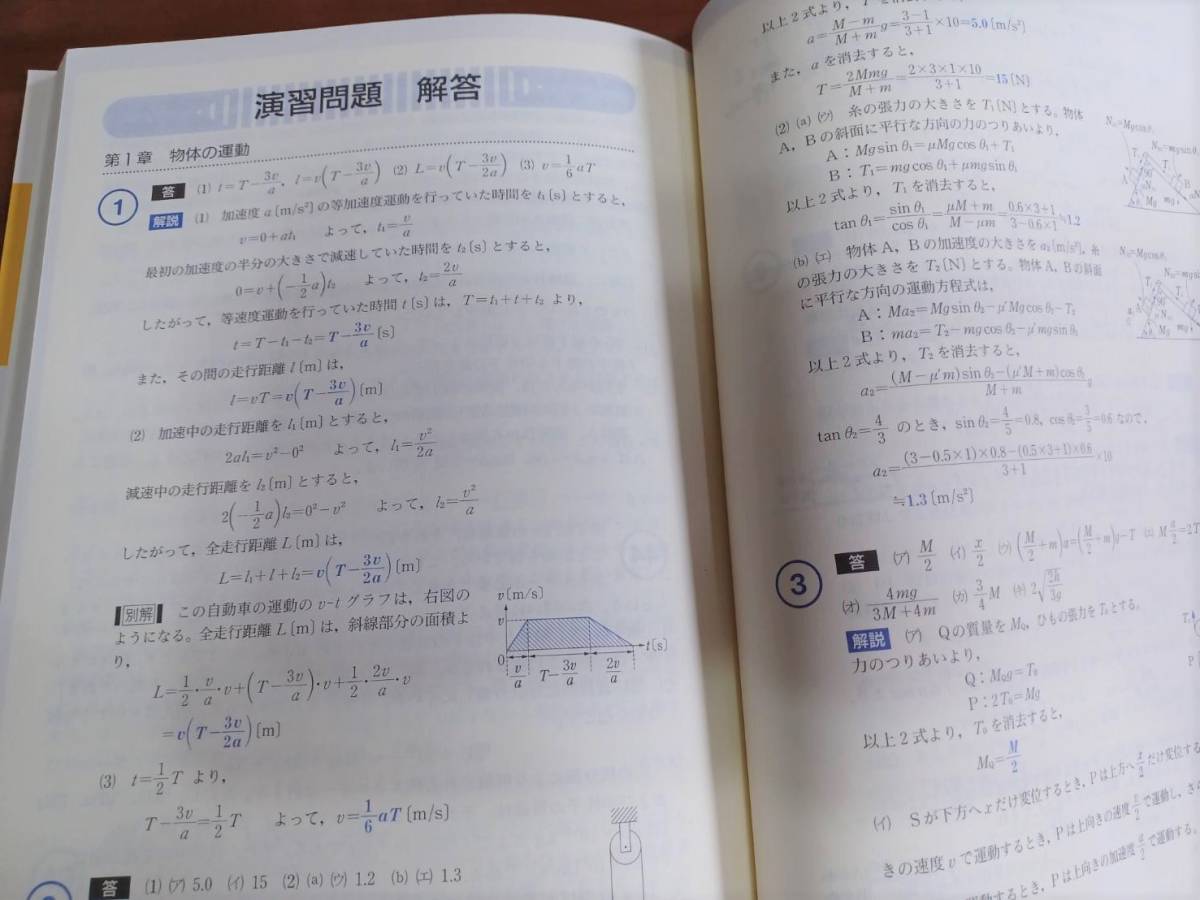 演習問題 解答
第1章 物体の運動
1 答 (1) t=T-3v/a, l=v(T-3v/a) (2) L=v(T-3v/2a) (3) v=1/6 aT
解説 (1) 加速度a〔m/s²〕の等加速度運動を行っていた時間をt₁〔s〕とすると,
v=0+at₁ よって, t₁=v/a
最初の加速度の半分の大きさで減速していた時間をt₂〔s〕とすると,
0=v+(-1/2 a)t₂ よって, t₂=2v/a
したがって, 等速度運動を行っていた時間t〔s〕は, T=t₁+t+t₂ より,
t=T-t₁-t₂=T-3v/a〔s〕
また, その間の走行距離l〔m〕は,
l=vT=v(T-3v/a)〔m〕
(2) 加速中の走行距離をl₁〔m〕とすると,
2al₁=v²-0² よって, l₁=v²/2a
減速中の走行距離をl₂〔m〕とすると,
2(-1/2 a)l₂=0²-v² よって, l₂=v²/a
したがって, 全走行距離L〔m〕は,
L=l₁+l+l₂=v(T-3v/2a)〔m〕
別解 この自動車の運動のv-tグラフは, 右図の
ようになる。全走行距離L〔m〕は, 斜線部分の面積よ
り,
L=1/2・v/a・v+(T-3v/a)・v+1/2・2v/a・v
=v(T-3v/2a)〔m〕
v〔m/s〕
v
0
t〔s〕
v/a T-3v/a 2v/a
(3) t=1/2 T より,
T-3v/a=1/2 T よって, v=1/6 aT〔m/s〕
答 (1) (ア) 5.0 (イ) 15 (2) (a) (ウ) 1.2 (b) (エ) 1.3
以上2式より,
a=M-m/M+m g=3-1/3+1×10=5.0〔m/s²〕
また, aを消去すると,
T=2Mmg/M+m=2×3×1×10/3+1=15〔N〕
(2) (a) (ウ) 糸の張力の大きさをT₁〔N〕とする。物体
A, Bの斜面に平行な方向の力のつりあいより,
A:Mgsinθ₁=μMgcosθ₁+T₁
B:T₁=mgcosθ₁+μmgsinθ₁
以上2式より, T₁を消去すると,
tanθ₁=sinθ₁/cosθ₁=μM+m/M-μm=0.6×3+1/3-0.6×1≒1.2
(b) (エ) 物体A, Bの加速度の大きさをa₂〔m/s²〕, 糸
の張力の大きさをT₂〔N〕とする。物体A, Bの斜面
に平行な方向の運動方程式は,
A:Ma₂=Mgsinθ₂-μ′Mgcosθ₂-T₂
B:ma₂=T₂-mgcosθ₂-μ′mgsinθ₂
以上2式より, T₂を消去すると,
a₂=(M-μ′m)sinθ₂-(μ′M+m)cosθ₂/M+m g
tanθ₂=4/3 のとき, sinθ₂=4/5=0.8, cosθ₂=3/5=0.6 なので,
a₂=(3-0.5×1)×0.8-(0.5×3+1)×0.6/3+1×10
≒1.3〔m/s²〕
3 答 (ア) M/2 (イ) x/2 (ウ) (M/2+m)a=(M/2+m)g-T (エ) M a/2=2T
(オ) 4mg/3M+4m (カ) 3/4 M (キ) 2√2h/3g
解説 (ア) Qの質量をM_Q, ひもの張力をT₀とする。
力のつりあいより,
Q:M_Qg=T₀
P:2T₀=Mg
以上2式より, T₀を消去すると,
M_Q=M/2
(イ) Sが下方へxだけ変位するとき, Pは上方へx/2だけ変位する
きの速度vで運動するとき, Pは上向きの速度v/2で運動し, さら
するとき, Pは上向きの加速度a/2で運動する。